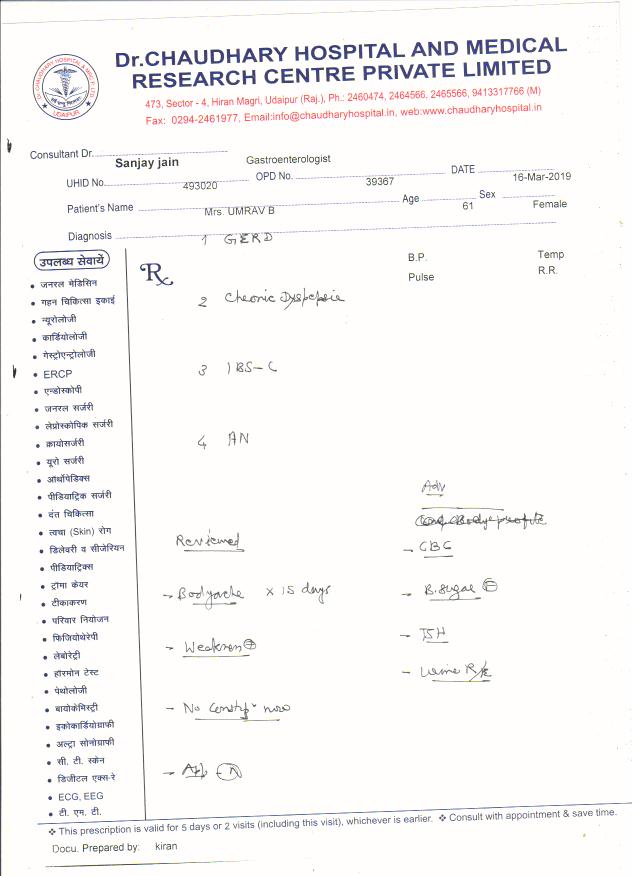 Dr.CHAUDHARY HOSPITAL AND MEDICAL
RESEARCH CENTRE PRIVATE LIMITED
473, Sector - 4, Hiran Magri, Udaipur (Raj.), Ph.: 2460474, 2464566, 2465566, 9413317766 (M)
Fax: 0294-2461977, Email:info@chaudharyhospital.in, web:www.chaudharyhospital.in
Consultant Dr. Sanjay jain Gastroenterologist
UHID No. 493020 OPD No. 39367 DATE 16-Mar-2019
Patient's Name Mrs. UMRAV B Age 61 Sex Female
Diagnosis 1 GERD
उपलब्ध सेवायें
Rx
B.P. Temp
Pulse R.R.
2 Cheonic Dyspepsie
3 IBS-C
4 AN
Adv
Reviewed
- CBC
- Bodyache x 15 days
- B.sugar F
- Weakness +
- TSH
- Urine R/E
- No constipn now
- App - N
• जनरल मेडिसिन
• गहन चिकित्सा इकाई
• न्यूरोलोजी
• कार्डियोलोजी
• गेस्ट्रोएन्ट्रोलोजी
• ERCP
• एन्डोस्कोपी
• जनरल सर्जरी
• लेप्रोस्कोपिक सर्जरी
• क्रायोसर्जरी
• यूरो सर्जरी
• ऑर्थोपेडिक्स
• पीडियाट्रिक सर्जरी
• दंत चिकित्सा
• त्वचा (Skin) रोग
• डिलेवरी व सीजेरियन
• पीडियाट्रिक्स
• ट्रॉमा केयर
• टीकाकरण
• परिवार नियोजन
• फिजियोथेरेपी
• लेबोरेट्री
• हॉरमोन टेस्ट
• पेथोलोजी
• बायोकेमिस्ट्री
• इकोकार्डियोग्राफी
• अल्ट्रा सोनोग्राफी
• सी. टी. स्केन
• डिजीटल एक्स-रे
• ECG, EEG
• टी. एम. टी.
❖ This prescription is valid for 5 days or 2 visits (including this visit), whichever is earlier. ❖ Consult with appointment & save time.
Docu. Prepared by: kiran